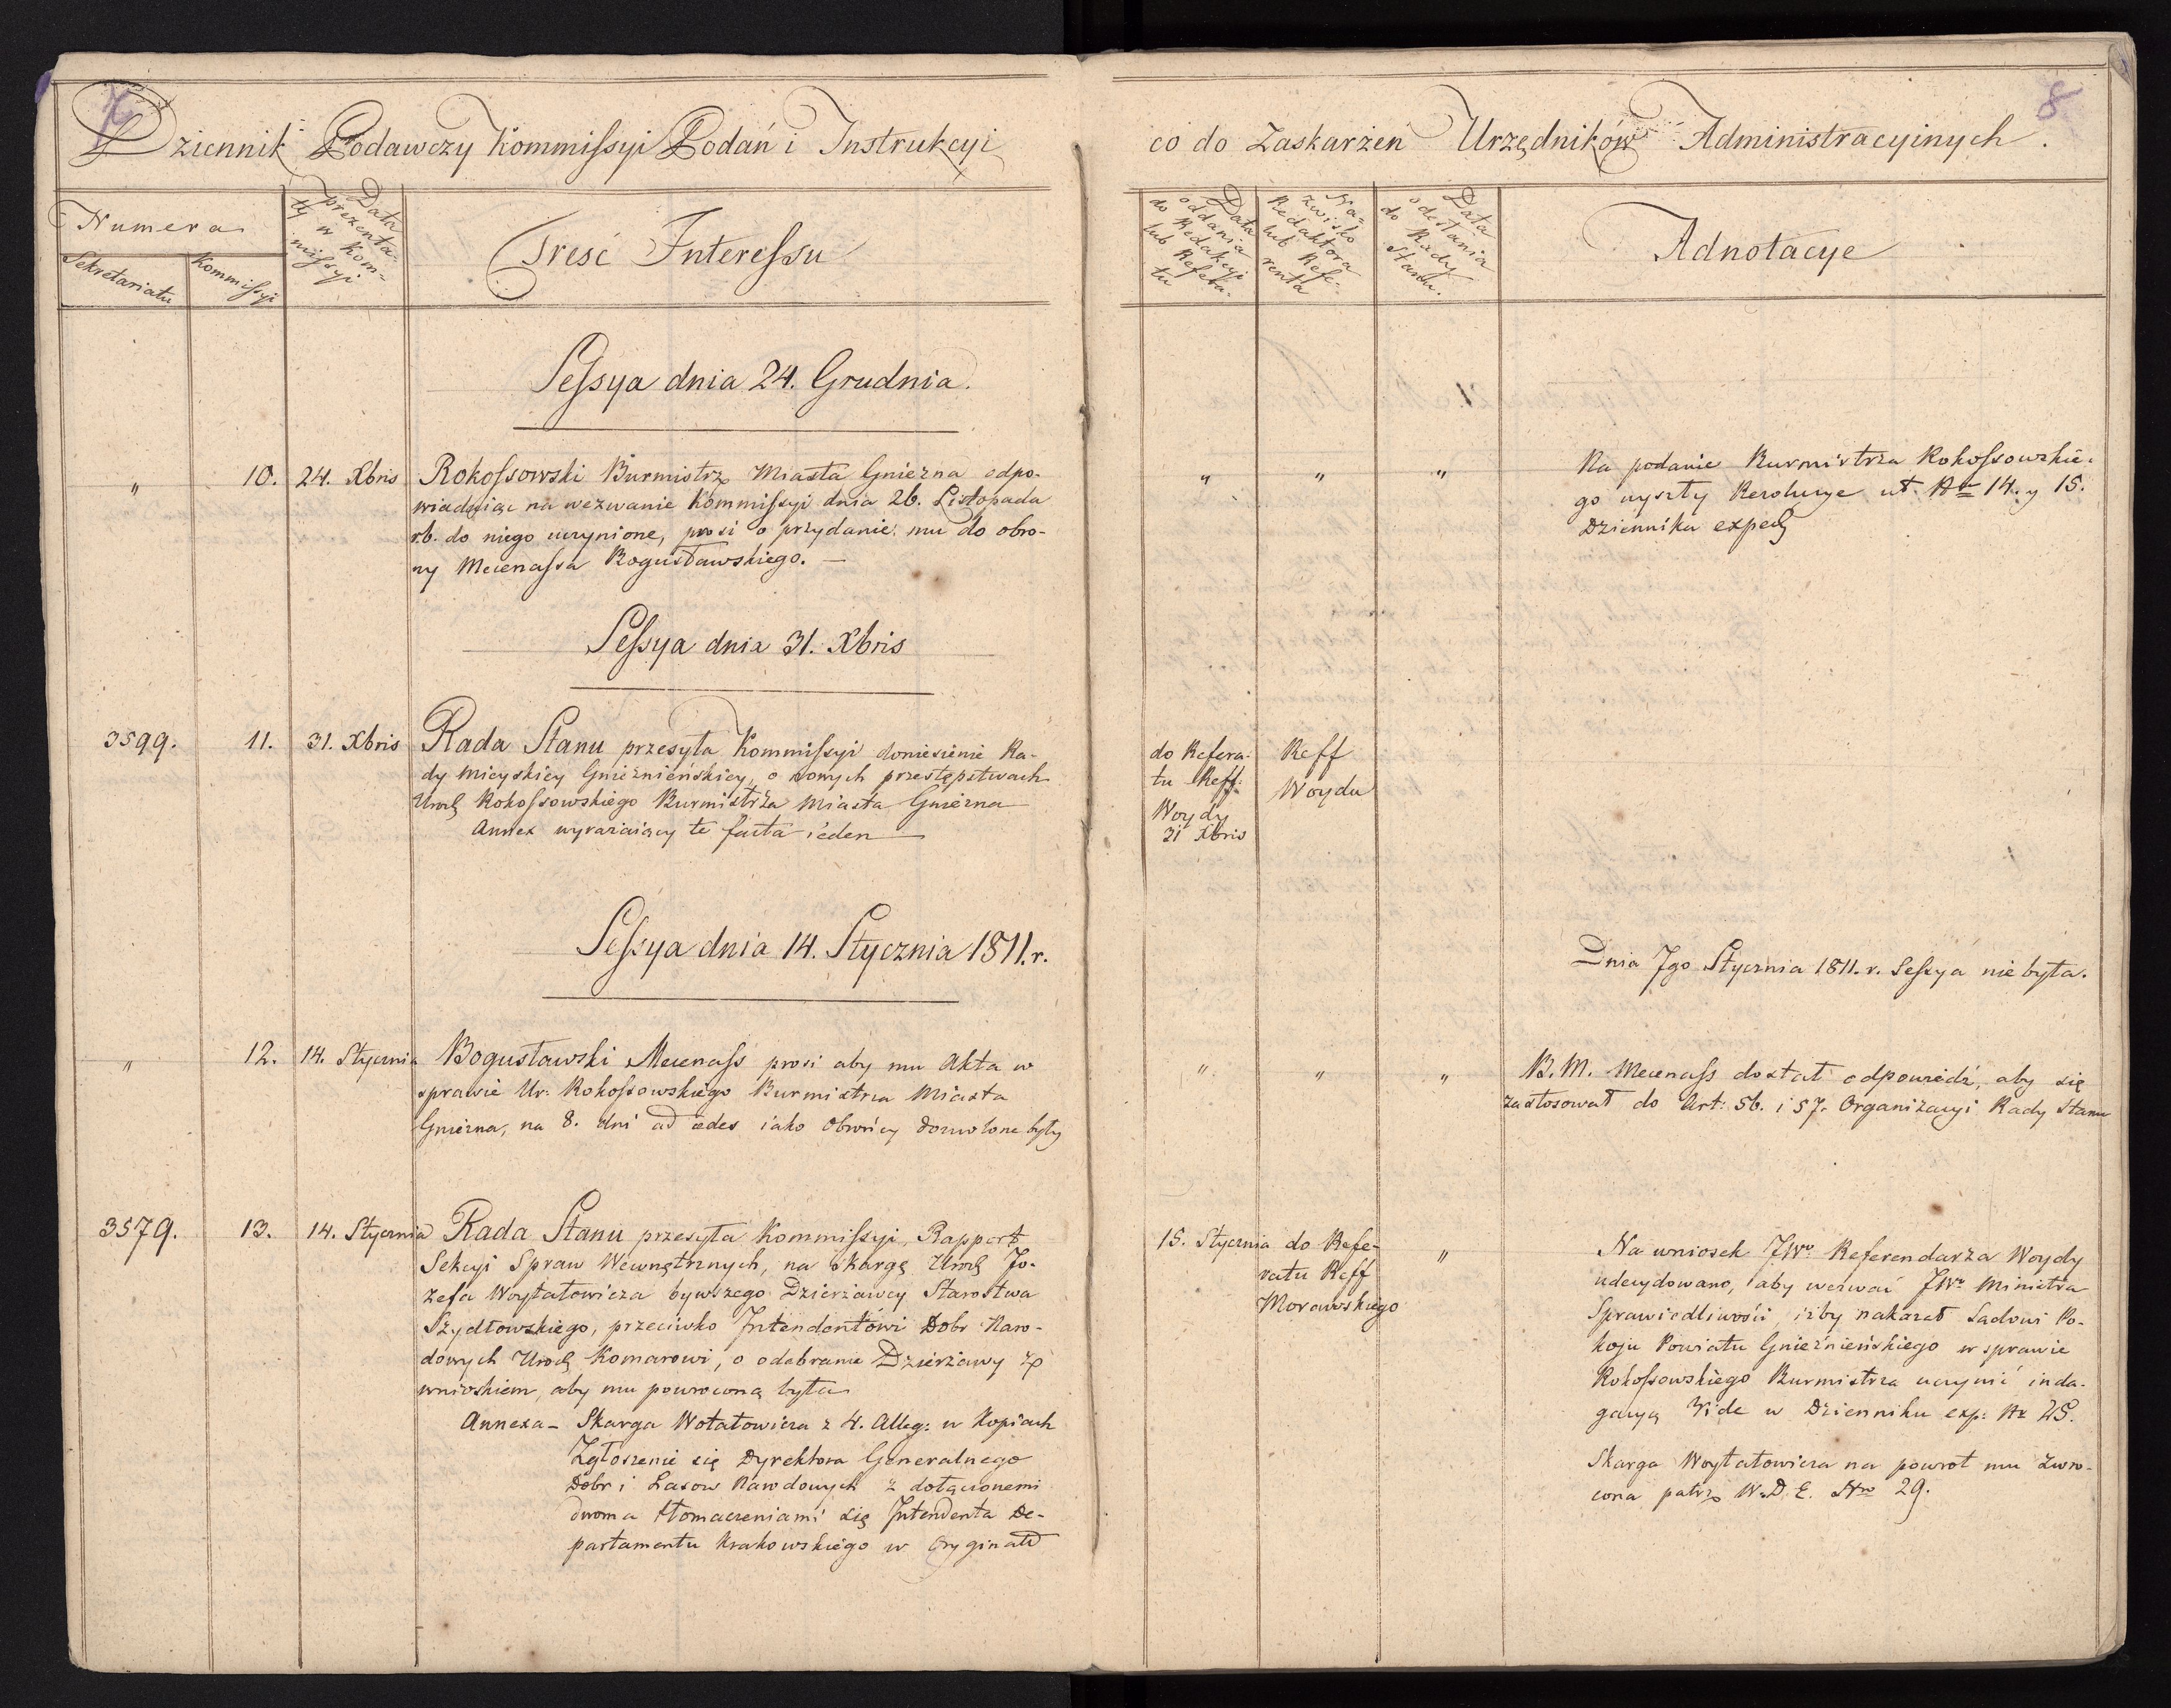 7
8
Dziennik Podawczy Kommissyi Podań i Instrukcyi
co do Zaskarżeń Urzędników Administracyinych.
Numera
Sekretariatu
Kommissyi
Data
prezenta-
ty w Kom-
missyi
Treść Interessu
Data
oddania
do Redakcyi
lub Refera-
tu
Na-
zwisko
Redaktora
lub Refe-
renta
Data
odesłania
do Rady
Stanu.
Adnotacye
Sessya dnia 24. Grudnia.
" 10. 24. Xbris Rokossowski Burmistrz Miasta Gniezna odpo-
wiadaiąc na wezwanie Kommissyi dnia 26. Listopada
r.b. do niego uczynione, prosi o przydanie mu do obro-
ny Mecenassa Bogusławskiego. —
" " "
Na podanie Burmistrza Rokossowskie-
go wyszły Rezolucye ut. Nr 14. y 15.
Dziennika exped
Sessya dnia 31. Xbris
3599. 11. 31. Xbris Rada Stanu przesyła Kommissyi doniesienie Ra-
dy Mieyskiey Gnieznieńskiey, o nowych przestępstwach
Urod Rokossowskiego Burmistrza Miasta Gniezna
Annex wyrażaiący te facta ieden
do Refera-
tu Reff.
Woydy
31 Xbris
Reff
Woyda
Sessya dnia 14. Stycznia 1811. r.
Dnia 7go Stycznia 1811. r. Sessya nie była.
" 12. 14. Stycznia Bogusławski Mecenass prosi aby mu Akta w
sprawie Ur: Rokossowskiego Burmistrza Miasta
Gniezna, na 8. dni ad ædes iako Obrońcy dozwolone były
" " "
B. M. Mecenass dostał odpowiedź, aby się
zastosował do Art: 56. i 57. Organizacyi Rady Stanu
3579. 13. 14. Stycznia Rada Stanu przesyła Kommissyi, Rapport
Sekcyi Spraw Wewnętrznych, na Skargę Urod Jo-
zefa Woytatowicza bywszego Dzierżawcy Starostwa
Szydłowskiego, przeciwko Intendentowi Dobr Naro-
dowych Urod Komarowi, o odebranie Dzierżawy z
wnioskiem, aby mu powroconą była
Annexa – Skarga Wotatowicza z 4. Alleg: w Kopiach
Zgłoszenie się Dyrektora Generalnego
Dobr i Lasow Narodowych z dołączonemi
dwoma tłomaczeniami się Intendenta De-
partamentu Krakowskiego w Oryginale
15. Stycznia
do Refe-
ratu Reff
Morawskiego
"
Na wniosek JWo Referendarza Woydy
udecydowano, aby wezwać JWo Ministra
Sprawiedliwości, iżby nakazał Sądowi Po-
koju Powiatu Gnieźnieńskiego w sprawie
Rokossowskiego Burmistrza uczynić inda-
gacyą Vide w Dzienniku exp: Nr 25.
Skarga Woytatowicza na powrot mu zwro-
cona patrz W. D. E. Nro 29.